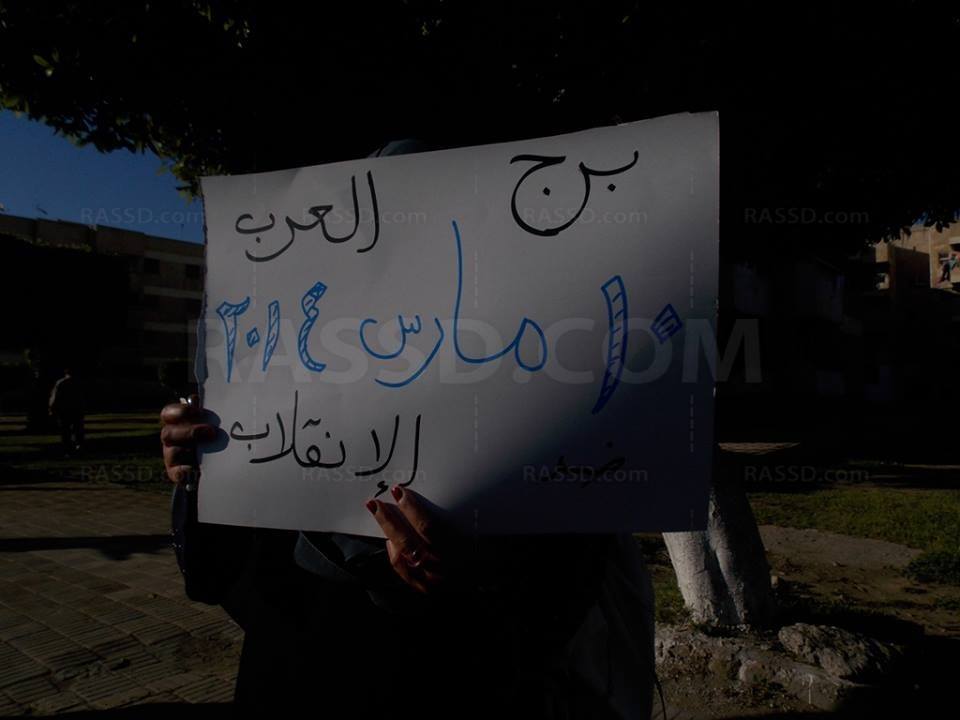 برج العرب
RASSD.com RASSD.com RASSD.com RASSD.com
١٠ مارس ٢٠١٤
RASSD.COM
ضد الإنقلاب
RASSD.com RASSD.com RASSD.com RASSD.com